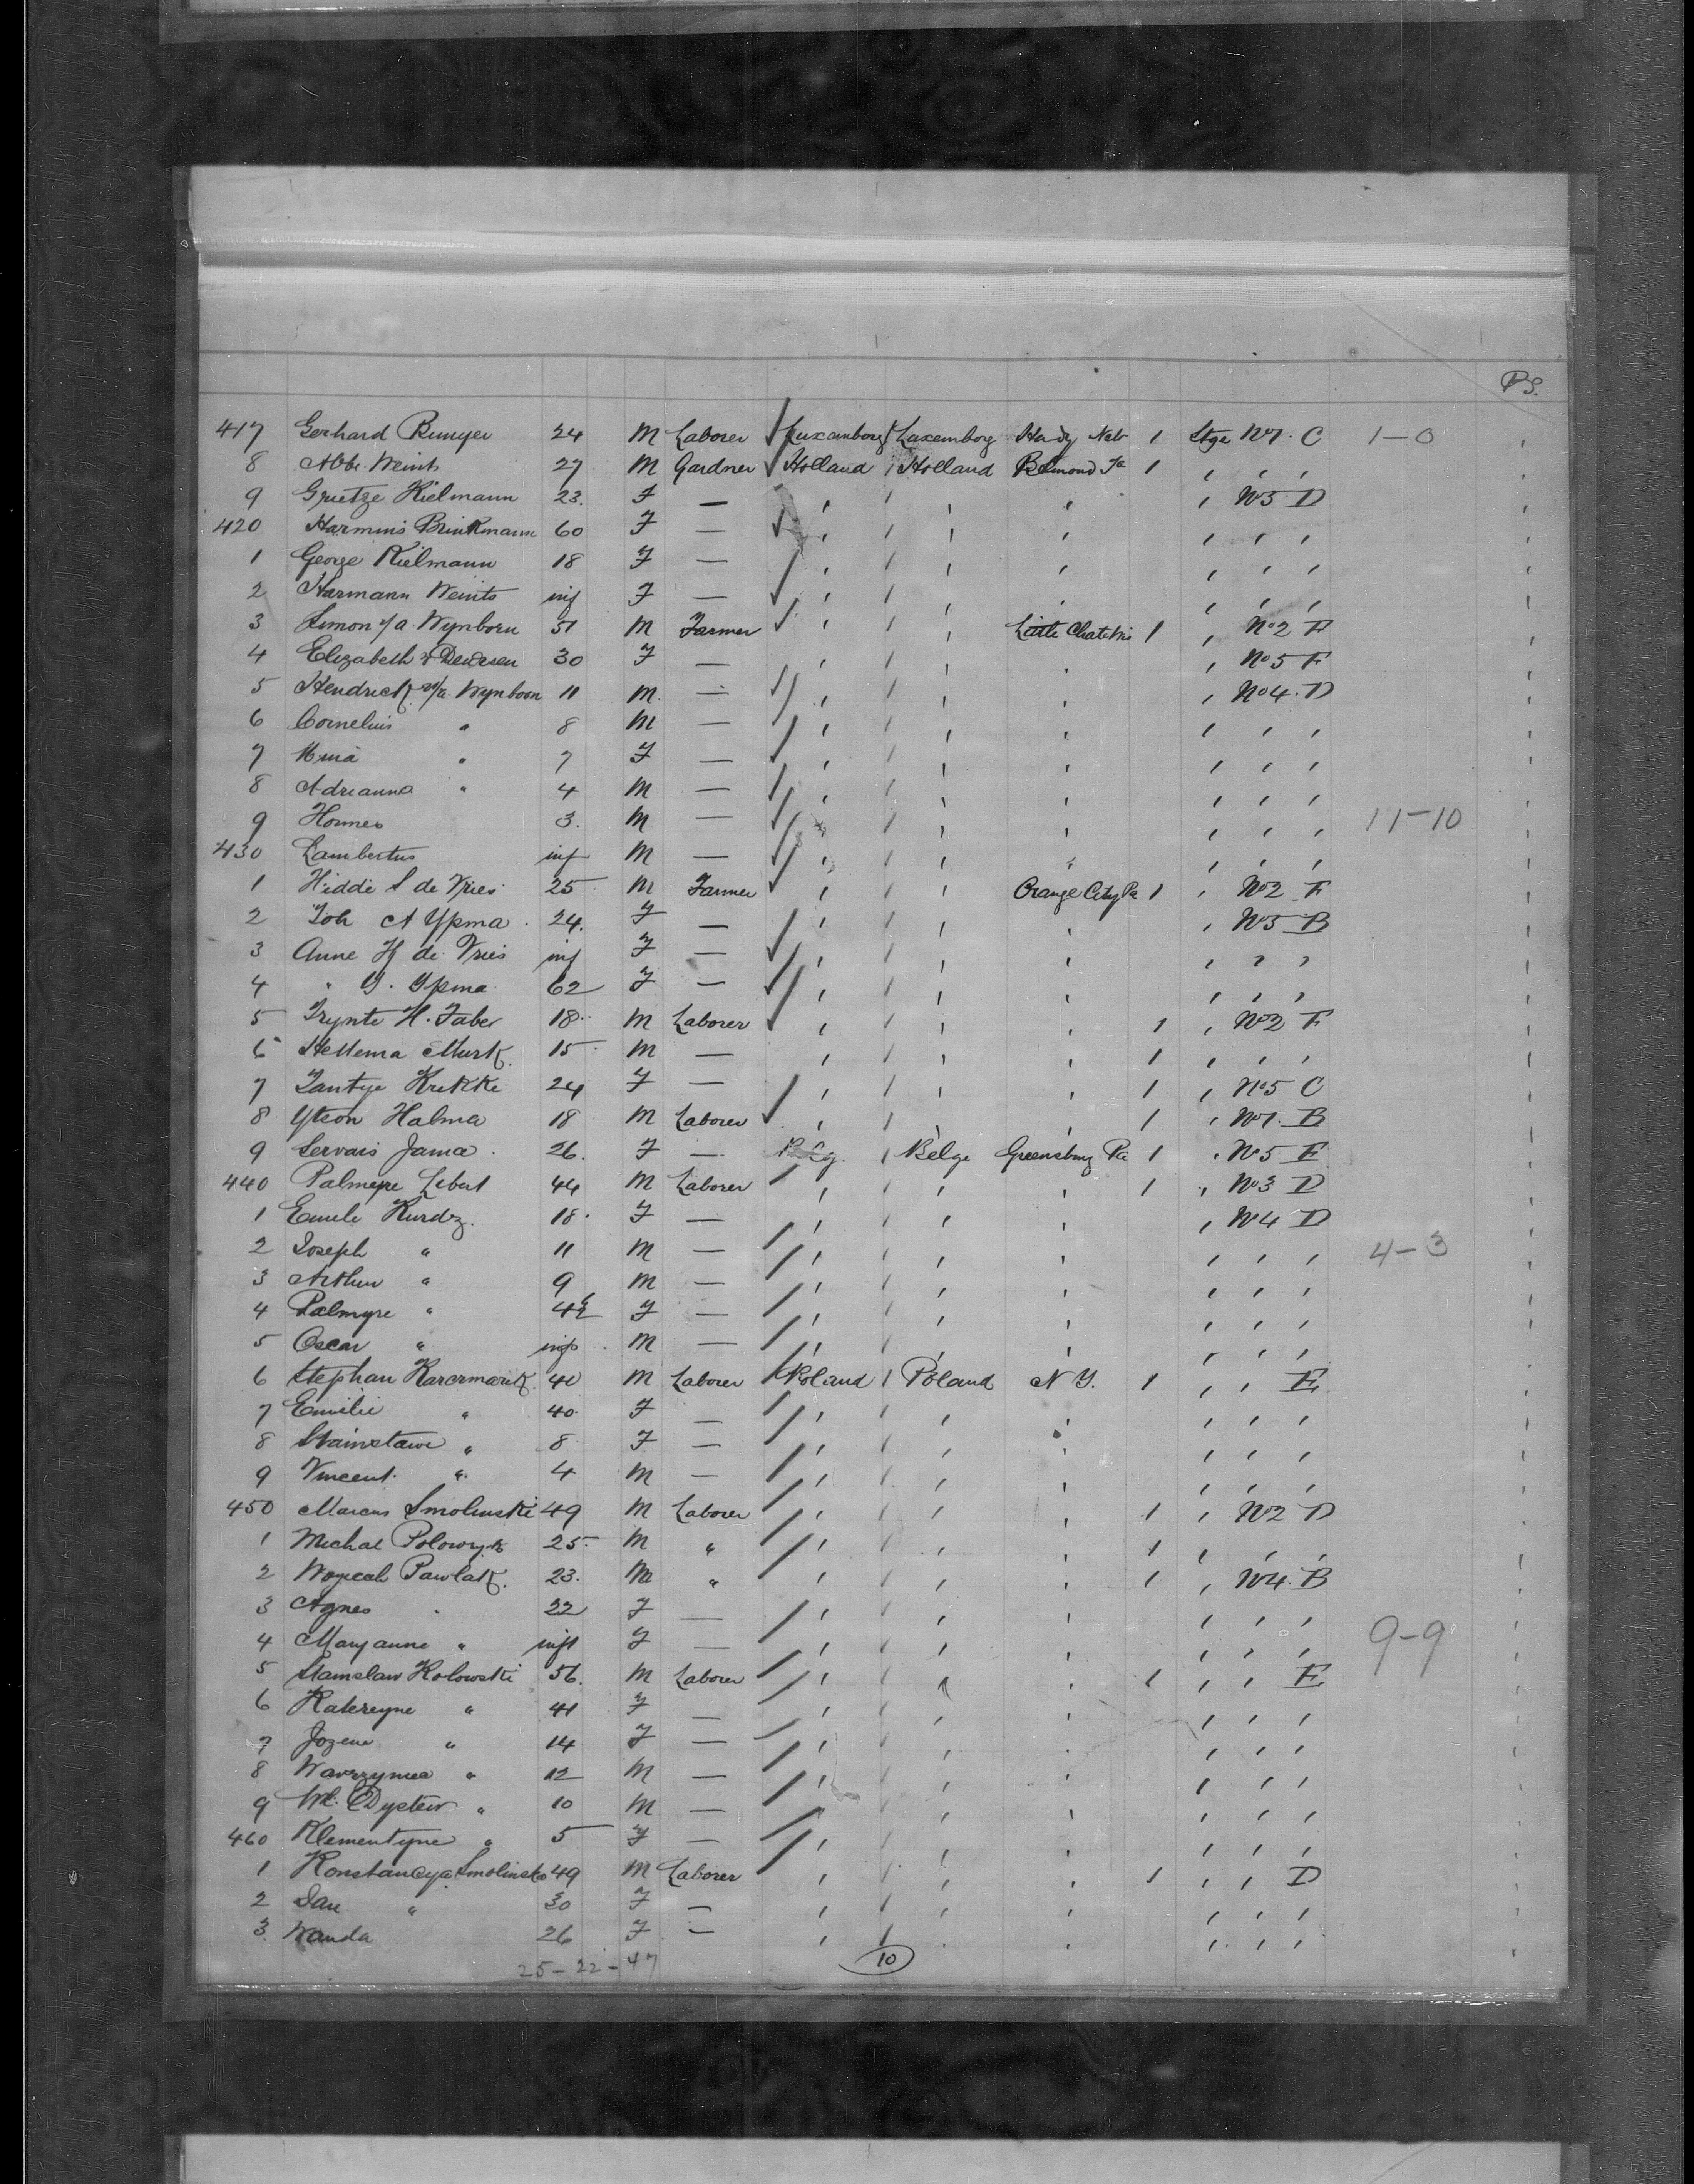 P S.
417 Gerhard Runyer 24 M Laborer Luxamborg Luxemborg Hardy Neb 1 Stge No 1. C 1-0
8 Abbe Weints 27 M Gardner Holland Holland Belmond Ia 1 " " "
9 Grietze Kielmann 23. F — " " " " No 3 D
420 Harmins Brinkmann 60 F — " " " " " "
1 George Kielmann 18 F — " " " " " "
2 Harmann Weints inf F — " " " " " "
3 Simon v/a Wynborn 51 M Farmer " " Little Chute Wis 1 " No 2 F
4 Elizabeth v Deursen 30 F — " " " " No 5 F
5 Hendrick v/a Wynboon 11 M — " " " " No 4. D
6 Cornelius " 8 M — " " " " " "
7 " 7 F — " " " " " "
8 Adrianna " 4 M — " " " " " "
9 Hannes 3. M — " " " " " " 11-10
430 Lambertus inf M — " " " " " "
1 Hidde S de Vries 25 M Farmer " " Orange City 1 " No 2 F
2 Joh A Ypma 24. F — " " " " No 3 B
3 Anne H de Vries inf F — " " " " " "
4 " Y. Ypma 62 F — " " " " " "
5 Trynte H. Faber 18 M Laborer " " " 1 " No 2 F
6 Hettema Murk 15 M — " " " 1 " " "
7 Tantye Krekke 24 F — " " " 1 " No 5 C
8 Ytson Halma 18 M Laborer " " " 1 " No 1. B
9 Servais Jama 26. F — Belg. Belge Greensburg Pa 1 " No 5 E
440 Palmyre Lebert 44 M Laborer " " " 1 " No 3 D
1 Emile Kurdz. 18. F — " " " " No 4 D
2 Joseph " 11 M — " " " " " " 4-3
3 Arthur " 9 M — " " " " " "
4 Palmyre " 4 F — " " " " " "
5 Oscar " inf. M — " " " " " "
6 Stephan Karcrmarik 40 M Laborer Poland Poland N Y. 1 " " E
7 Emilie " 40. F — " " " " " "
8 Stainstawe " 8 F — " " " " " "
9 Vincent " 4 M — " " " " " "
450 Marcus Smolinski 49 M Laborer " " " 1 " No 2 D
1 Michal 25. M " " " " 1 " " "
2 Woyceah Pawlak. 23. M " " " " 1 " No 4. B
3 Agnes " 22 F — " " " " " "
4 Maryanne " inft F — " " " " " " 9-9
5 Stanislaw Kolowski 56. M Laborer " " " 1 " " E
6 Katereyne " 41 F — " " " " " "
7 Jozene " 14 F — " " " " " "
8 Wawrzynca " 12 M — " " " " " "
9 " 10 M — " " " " " "
460 Klementyne " 5 F — " " " " " "
1 Konstancya Smolinska 49 M Laborer " " " 1 " " D
2 " 30 F — " " " " " "
3. Wanda 26 F — " " " " " "
25-22-47 10